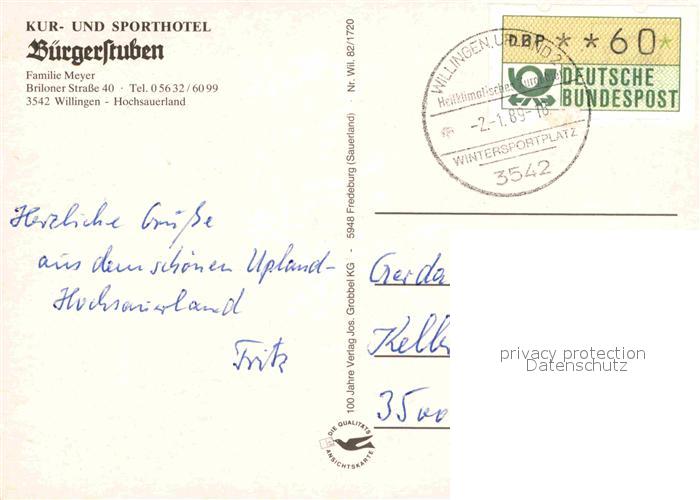 KUR- UND SPORTHOTEL
Bürgerstuben
Familie Meyer
Briloner Straße 40 · Tel. 0 56 32 / 60 99
3542 Willingen - Hochsauerland
Herzliche Grüße
aus dem schönen Upland-
Hochsauerland
Fritz
100 Jahre Verlag Jos. Grobbel KG - 5948 Fredeburg (Sauerland) · Nr. Wil. 82/1720
DIE QUALITÄTS
ANSICHTSKARTE
DBP * * 60 *
DEUTSCHE
BUNDESPOST
WILLINGEN, UPLAND 2
Heilklimatischer
-2.-1.89-18
WINTERSPORTPLATZ
3542
Gerda
Kell
3500
privacy protection
Datenschutz